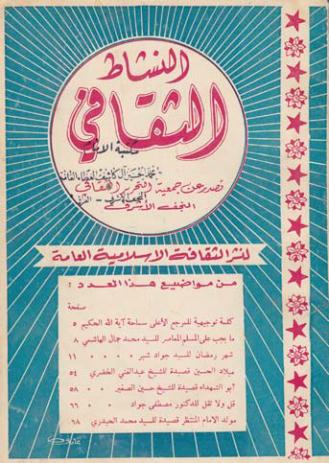 النشاط
الثقافي
مكتبة الإمام
تصدر عن جمعية التحرير الثقافي
النجف الأشرف
لنشر الثقافة الاسلامية العامة
من مواضيع هذا العدد :
صفحة
كلمة توجيهية للمرجع الأعلى سماحة آية الله الحكيم ٥
ما يجب على المسلم المعاصر للسيد محمد جمال الهاشمي ٨
شهر رمضان للسيد جواد شبر ١١
ميلاد الحسين قصيدة للشيخ عبدالغني الخضري ٥٤
أبو الشهداء قصيدة للشيخ حسين الصغير ٥٨
قل ولا تقل للدكتور مصطفى جواد ٦٦
مولد الامام المنتظر قصيدة للسيد محمد الحيدري ٦٨